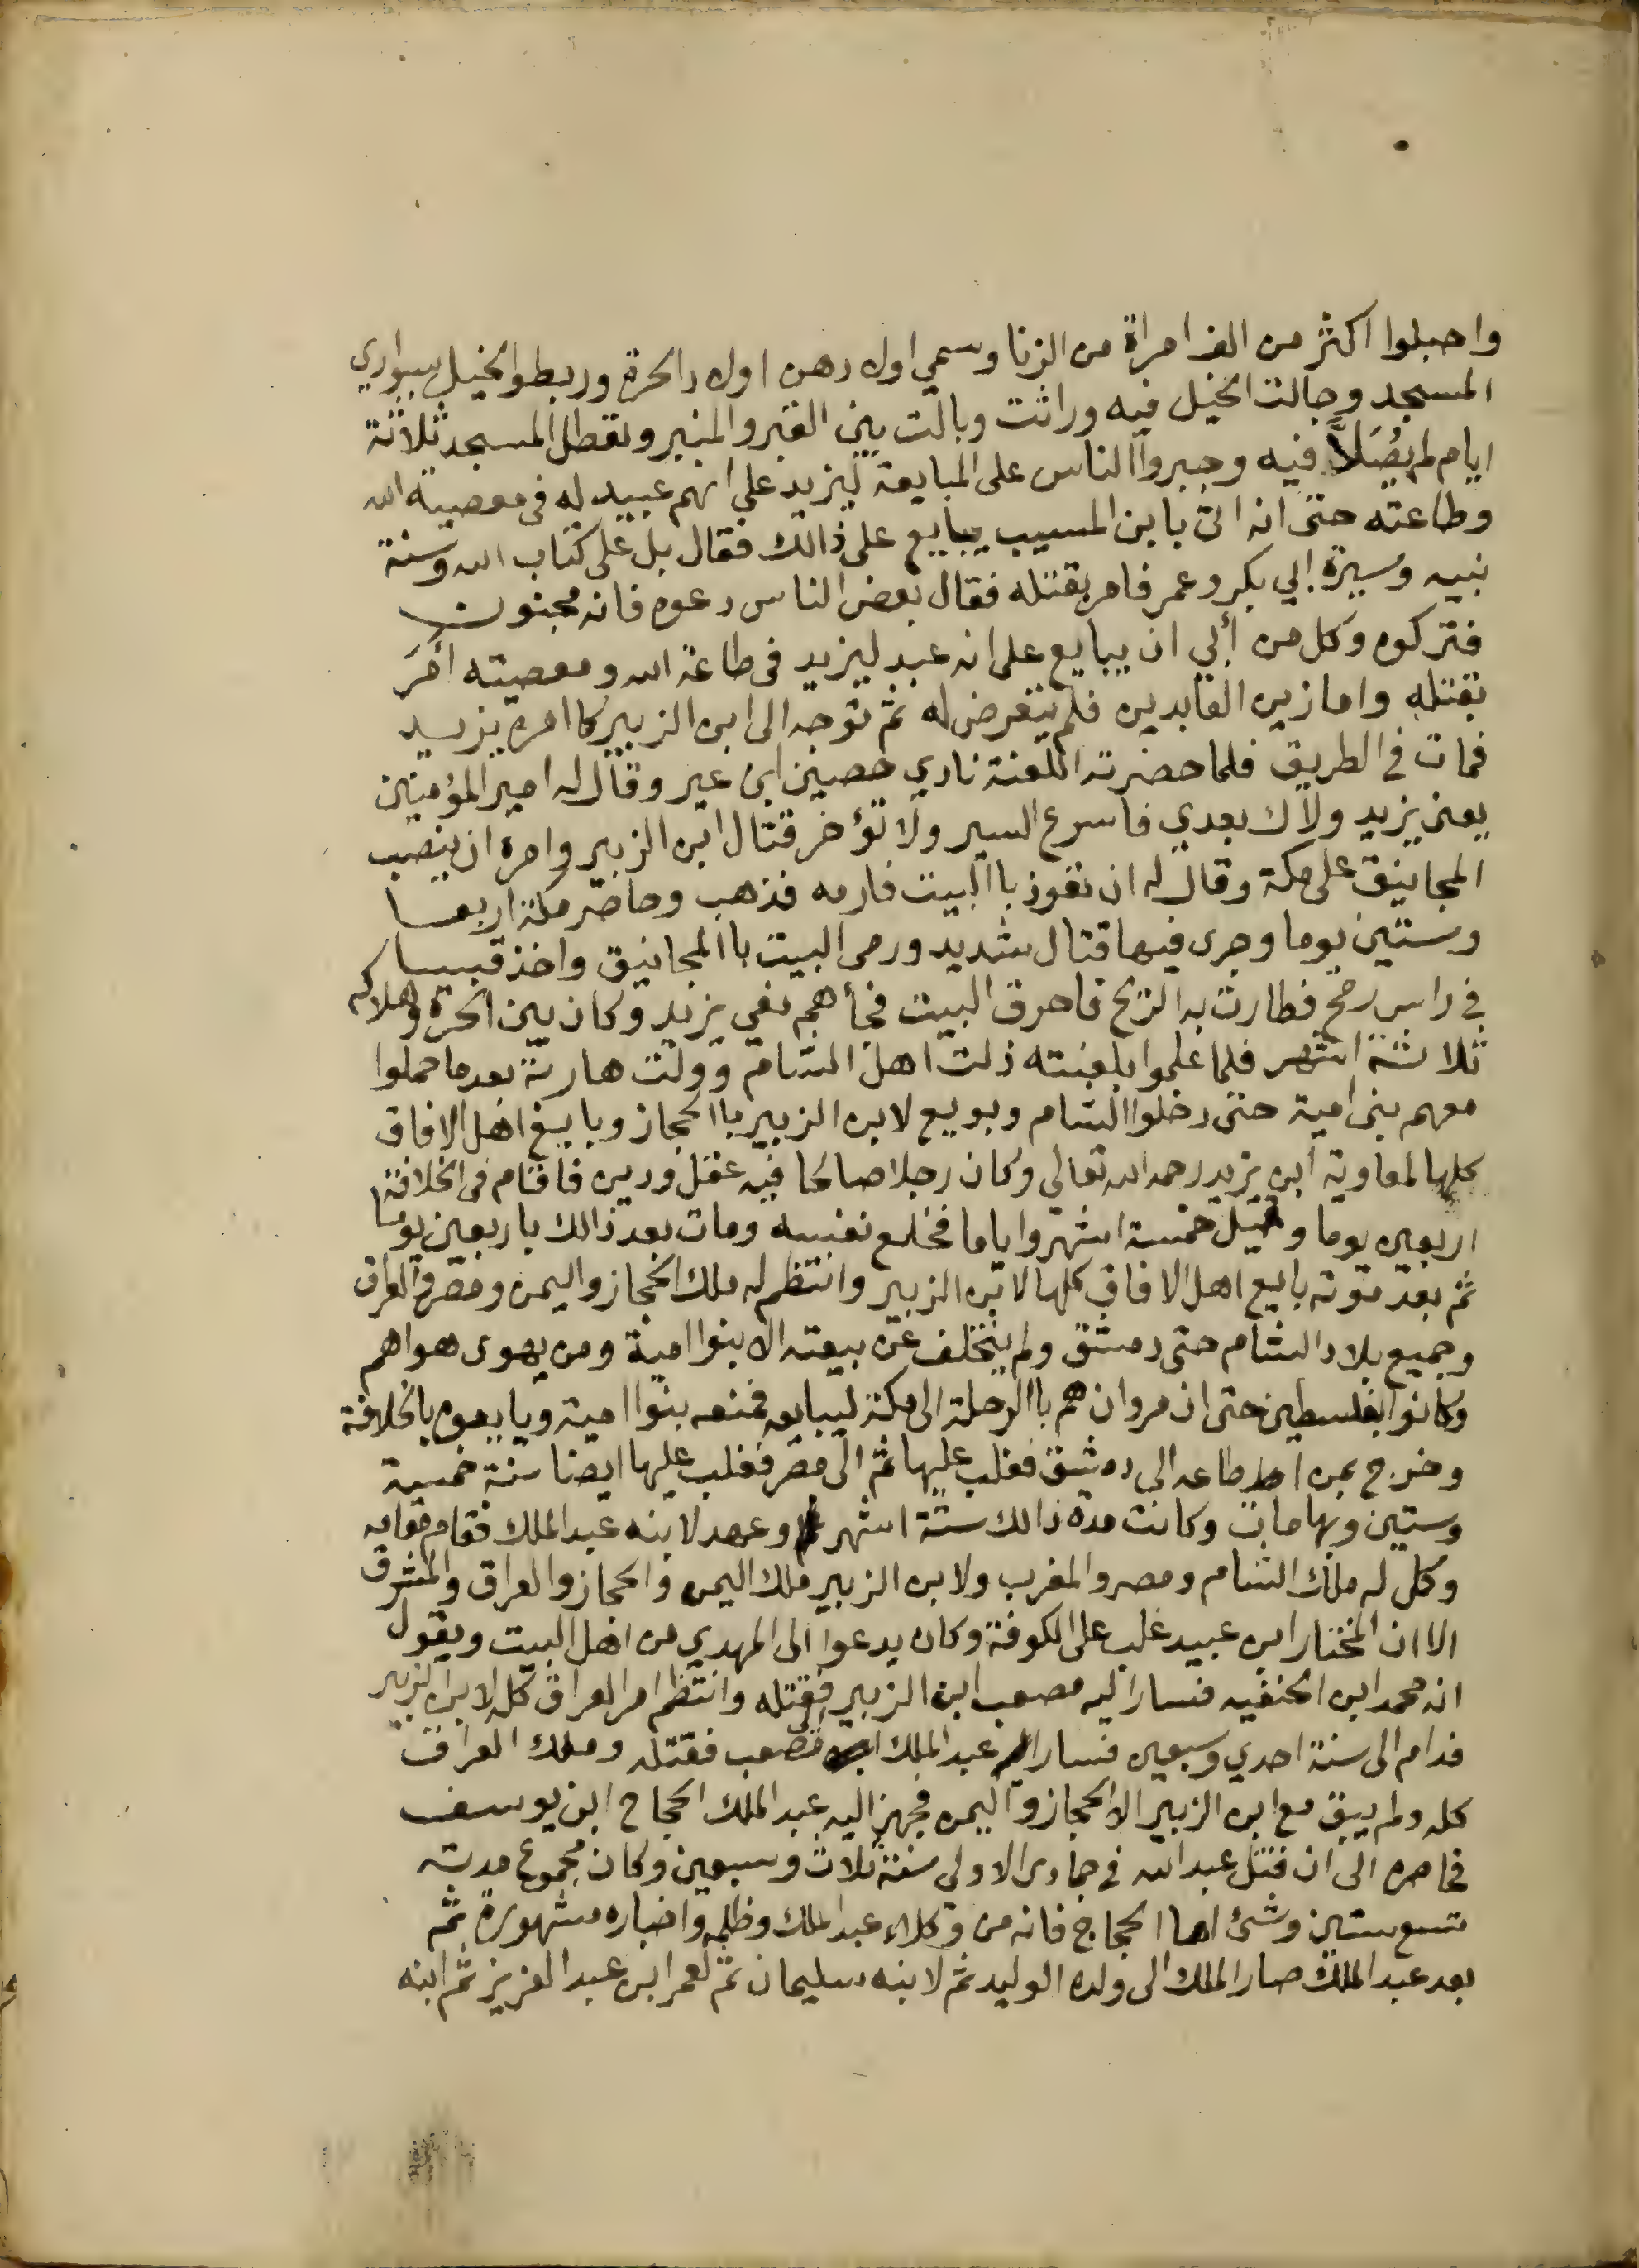 واحبلوا اكثر من الف امراة من الزنا وسمي اولادهن اولاد الحرة وربطوا الخيل بسواري
المسجد وجالت الخيل فيه وراثت وبالت بين القبر والمنبر وتعطل المسجد ثلاثة
ايام لم يُصَلاَّ فيه وجبروا الناس على المبايعة ليزيد على انهم عبيد له في معصية الله
وطاعته حتى انه اتي باابن المسيب يبايع على ذالك فقال بل على كتاب الله وسنة
نبيه وسيرة ابي بكر وعمر فامر بقتله فقال بعض الناس دعوه فانه مجنون
فتركوه وكل من أبي ان يبايع على انه عبد ليزيد في طاعة الله ومعصيته أمَرَ
بقتله واما زين العابدين فلم يتعرض له ثم توجه الى ابن الزبير كما امره يزيد
فمات في الطريق فلما حضرته اللعنة نادي حصين ابن نمير وقال له امير المؤمنين
يعني يزيد ولاك بعدي فاسرع السير ولا تؤخر قتال ابن الزبير وامره ان ينصب
المجانيق على مكة وقال له ان تعوذ باالبيت فارمه فذهب وحاصر مكة اربعا
وستين يوما وجرى فيها قتال شديد ورمى البيت باالمجانيق واخذ قبسا
في راس رمح فطارت به الريح فاحرق البيت فجأهم نعي يزيد وكان بين الحرة وهلاكه
ثلاثة اشهر فلما علموا بلعنته ذلت اهل الشام وولت هاربة بعد ما حملوا
معهم بني امية حتى دخلوا الشام وبويع لابن الزبير باالحجاز وبايع اهل الافاق
كلها لمعاوية ابن يزيد رحمه الله تعالى وكان رجلا صالحا فيه عقل ودين فاقام في الخلافة
اربعين يوما وقيل خمسة اشهر واياما فخلع نفسه ومات بعد ذالك باربعين يوما
ثم بعد موته بايع اهل الافاق كلها لابن الزبير وانتظم له ملك الحجاز واليمن ومصر والعراق
وجميع بلاد الشام حتى دمشق ولم يتخلف عن بيعته الا بنوا امية ومن يهوى هواهم
وكانوا بفلسطين حتى ان مروان هم باالرحلة الى مكة ليبايعه فمنعه بنوا امية وبايعوه بالخلافة
وخرج بمن اطاعه الى دمشق فغلب عليها ثم الى مصر فغلب عليها ايضا سنة خمسة
وستين وبها مات وكانت مدة ذالك ستة اشهر وعهد لابنه عبد الملك فقام مقامه
وكل له ملك الشام ومصر والمغرب ولابن الزبير ملك اليمن والحجاز والعراق والمشرق
الا ان المختار ابن عبيد غلب على الكوفة وكان يدعوا الى المهدي من اهل البيت ويقول
انه محمد ابن الحنفيه فسار اليه مصعب ابن الزبير فقتله وانتظم امر العراق كله لابن الزبير
فدام الى سنة احدي وسبعين فسار عبد الملك الى مصعب فقتله وملك العراق
كله ولم يبق مع ابن الزبير الا الحجاز واليمن فجهز اليه عبد الملك الحجاج ابن يوسف
فحاصره الى ان قتل عبد الله في جمادى الاولى سنة ثلاث وسبعين وكان مجموع مدته
تسع سنين وشئ اما الحجاج فانه من وكلاء عبد الملك وظلمه واخباره مشهورة ثم
بعد عبد الملك صار الملك الى ولده الوليد ثم لابنه سليمان ثم لعمر ابن عبد العزيز ثم ابنه